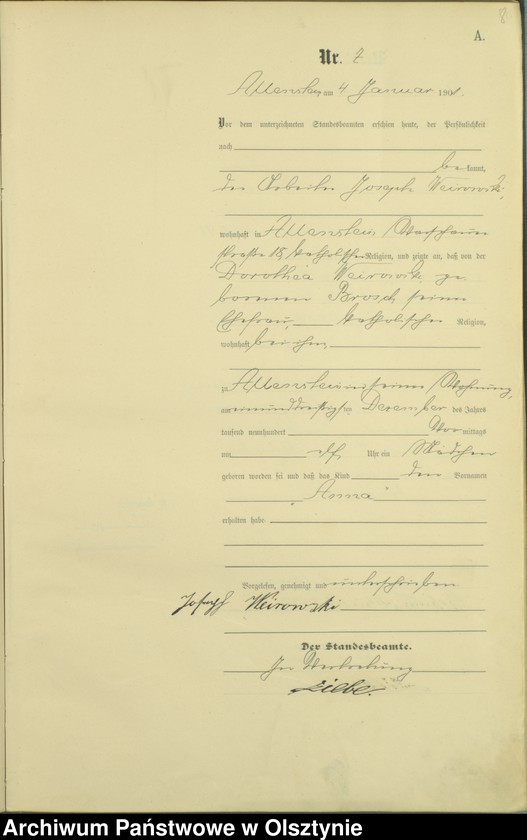 8
A.
Nr. 7
Allenstein, am 4 Januar 1901.
Vor dem unterzeichneten Standesbeamten erschien heute, der Persönlichkeit
nach
be kannt,
der Arbeiter Joseph Weirowski,
wohnhaft in Allenstein, Warschauer
straße 18, katholischer Religion, und zeigte an, daß von der
Dorothea Weirowski ge
borenen Brosch, seiner
Ehefrau, katholischer Religion,
wohnhaft bei ihm,
zu Allenstein in seiner Wohnung,
am einunddreißigsten Dezember des Jahres
tausend neunhundert Vor mittags
um elf Uhr ein Mädchen
geboren worden sei und daß das Kind den Vornamen
„Anna"
erhalten habe.
Vorgelesen, genehmigt und unterschrieben
Joseph Weirowski
Der Standesbeamte.
In Vertretung
Archiwum Państwowe w Olsztynie